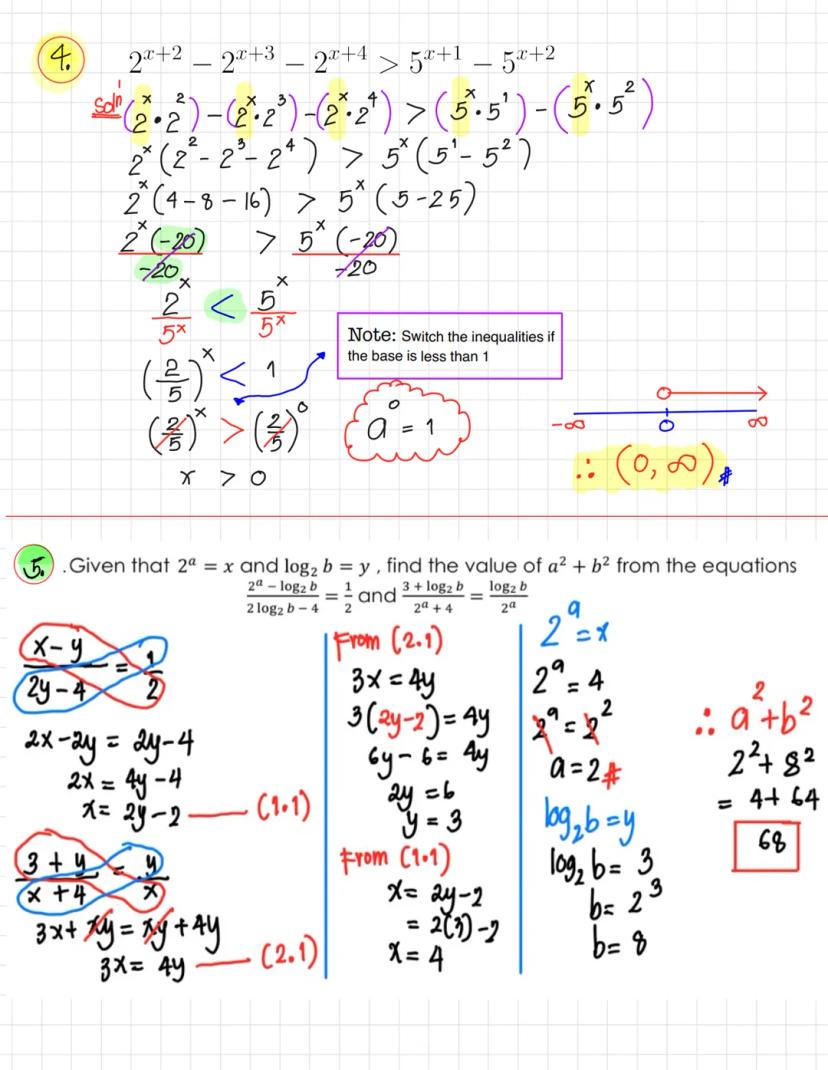 4. 2^{x+2} − 2^{x+3} − 2^{x+4} > 5^{x+1} − 5^{x+2}
Soln (2^x · 2^2) − (2^x · 2^3) − (2^x · 2^4) > (5^x · 5^1) − (5^x · 5^2)
2^x (2^2 − 2^3 − 2^4) > 5^x (5^1 − 5^2)
2^x (4 − 8 − 16) > 5^x (5 − 25)
2^x (−20) / −20 > 5^x (−20) / −20
2^x / 5^x < 5^x / 5^x
(2/5)^x < 1
Note: Switch the inequalities if
the base is less than 1
(2/5)^x > (2/5)^0
x > 0
a^0 = 1
−∞ 0 ∞
∴ (0, ∞) #
5. .Given that 2^a = x and log₂ b = y , find the value of a² + b² from the equations
(2^a − log₂ b) / (2 log₂ b − 4) = 1/2 and (3 + log₂ b) / (2^a + 4) = (log₂ b) / 2^a
(x − y) / (2y − 4) = 1/2
2x − 2y = 2y − 4
2x = 4y − 4
x = 2y − 2 — (1.1)
(3 + y) / (x + 4) = y / x
3x + xy = xy + 4y
3x = 4y — (2.1)
From (2.1)
3x = 4y
3(2y−2) = 4y
6y − 6 = 4y
2y = 6
y = 3
From (1.1)
x = 2y − 2
= 2(3) − 2
x = 4
2^a = x
2^a = 4
2^a = 2^2
a = 2 #
log₂b = y
log₂ b = 3
b = 2^3
b = 8
∴ a² + b²
2² + 8²
= 4 + 64
68